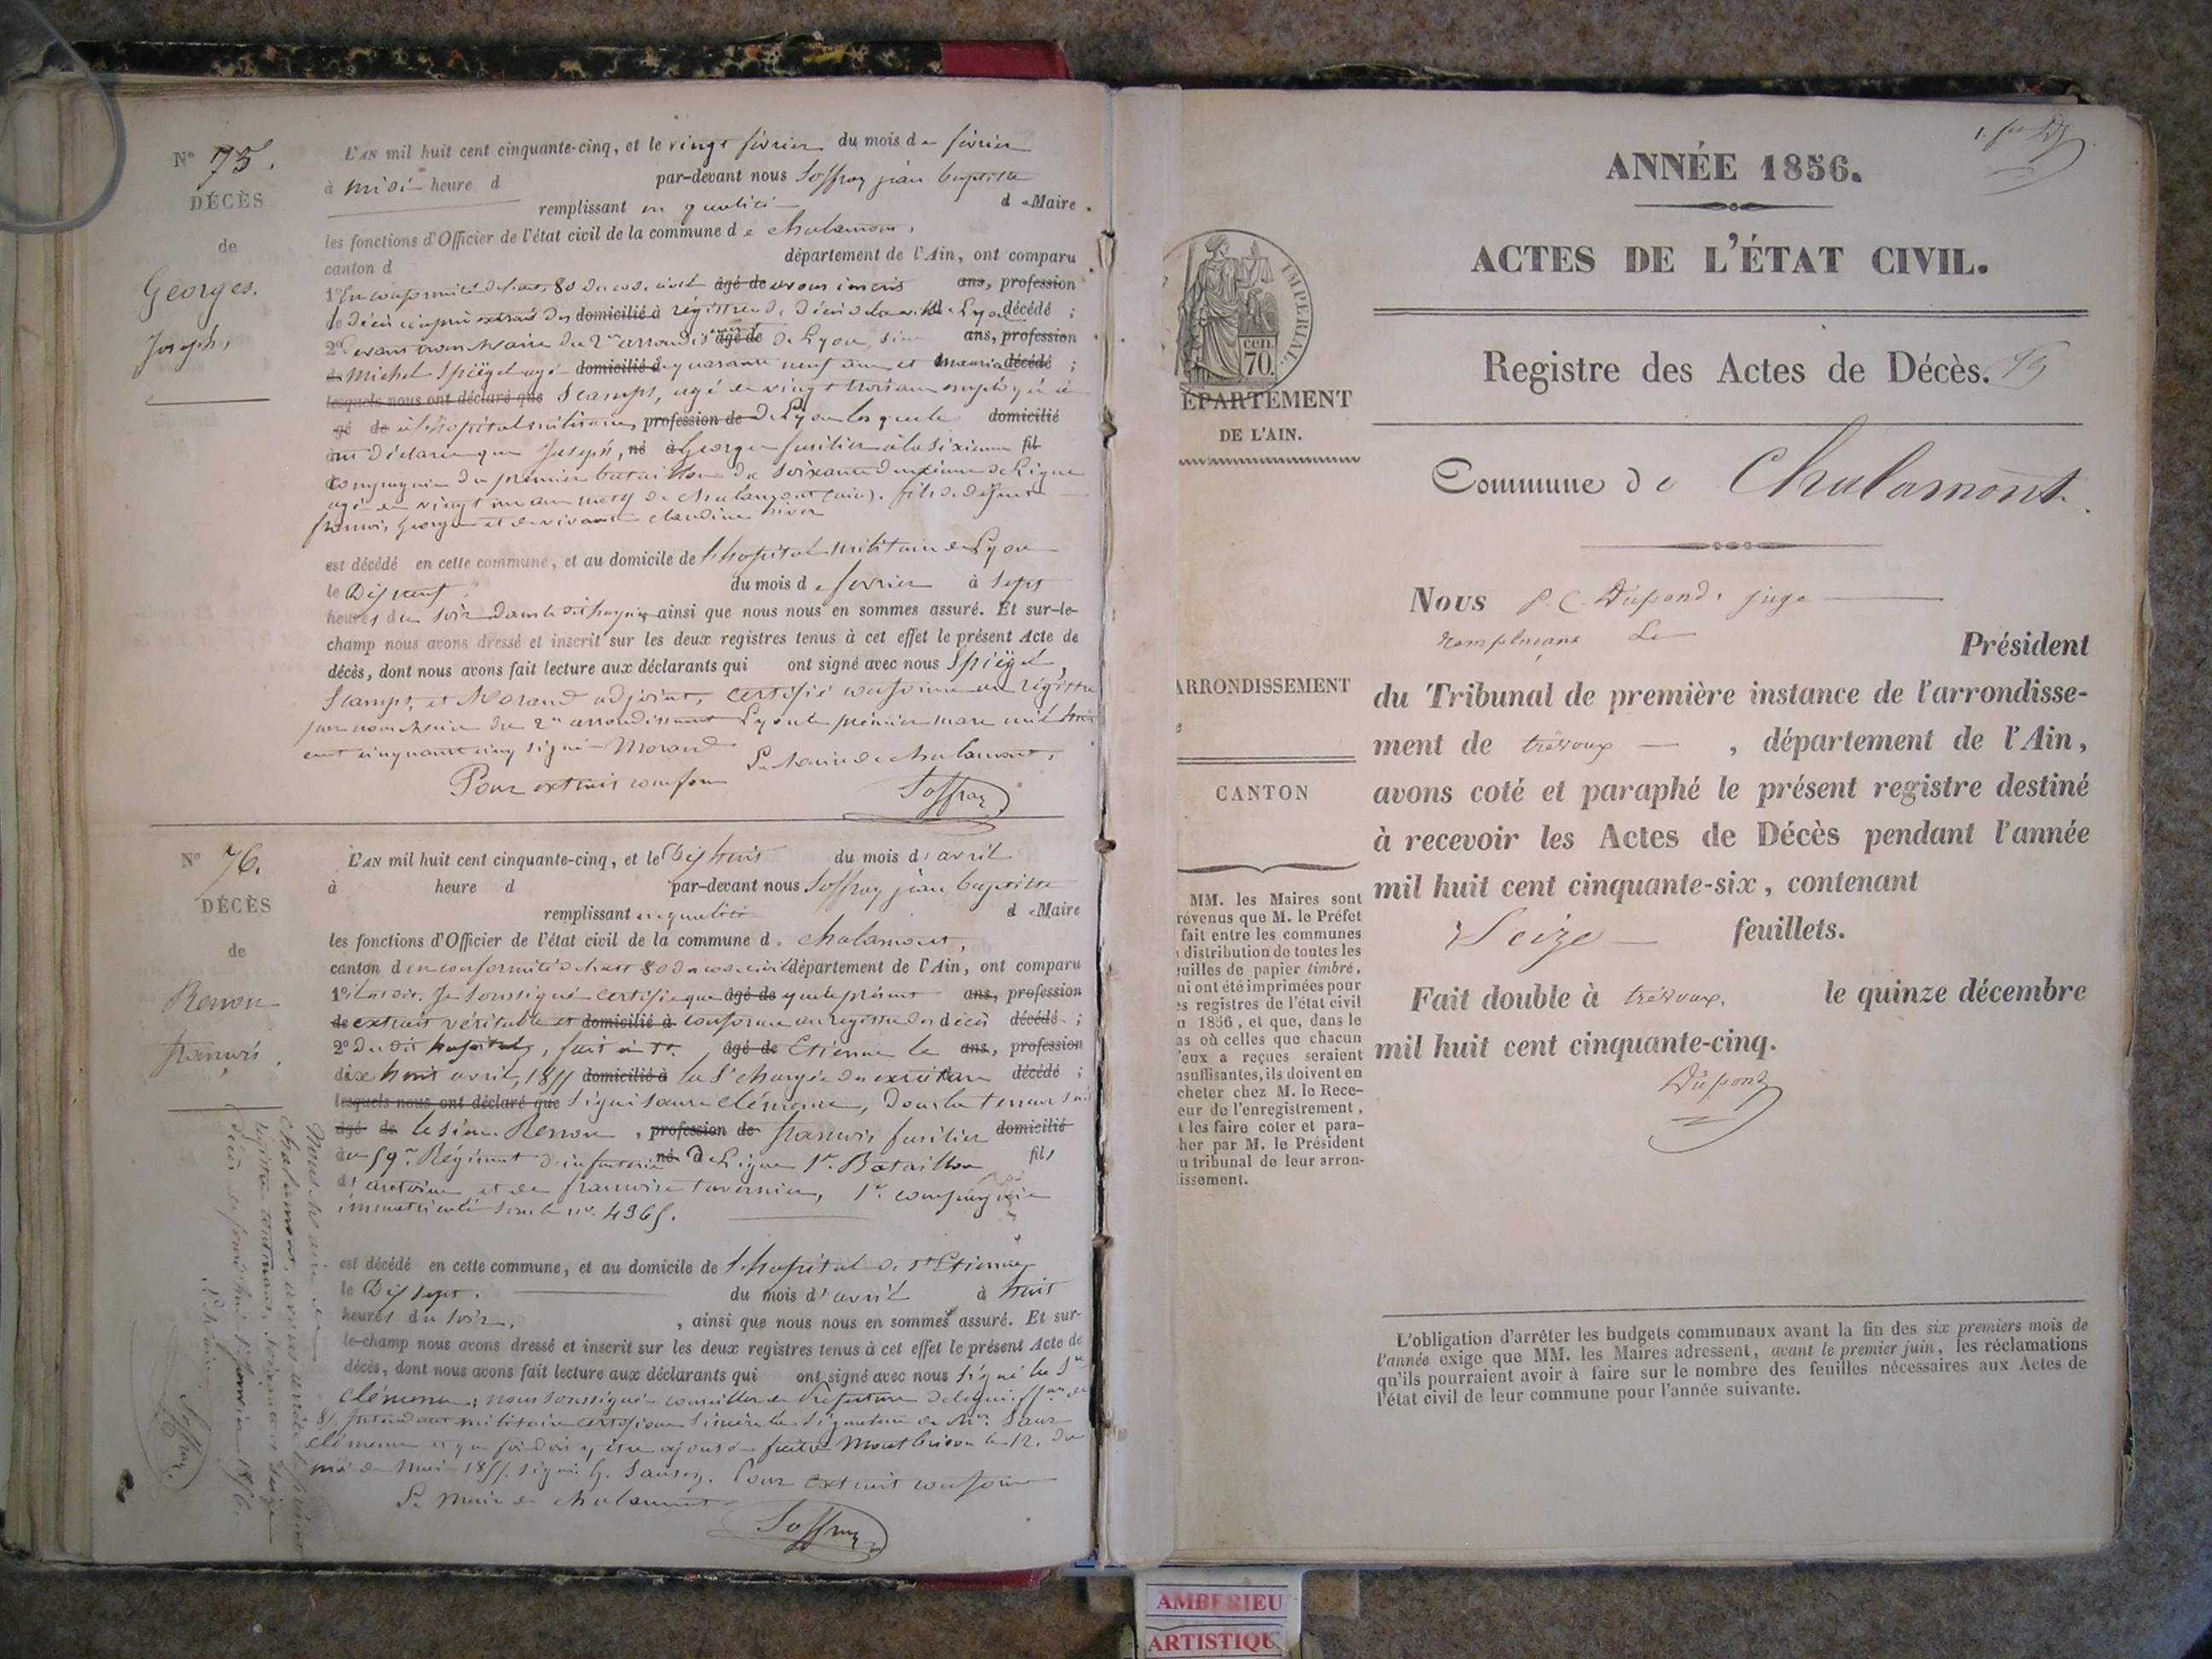 N° 75.
DÉCÈS
de
Georges.
Joseph,
L'AN mil huit cent cinquante-cinq, et le vingt février du mois de février
à midi heure d par-devant nous Soffray jean baptiste
remplissant en qualité de Maire.
les fonctions d'Officier de l'état civil de la commune de chalamont,
canton d département de l'Ain, ont comparu
1° En conformité de l'art. 80 du code civil âgé de avons inscrit ans, profession
le décès domicilié à registre de décès de la de Lyon décédé ;
2° Devant nous Maire du 2me arrondis âgé de de Lyon, ans, profession
de Michel Spiégel agé domicilié à quarante neuf ans et décédé ;
lesquels nous ont déclaré que Stamps, agé de vingt trois ans employé
gé de à l'hopital militaire, profession de De Lyon lesquels domicilié
ont déclaré que Joseph, né à George fusilier à la sixième fil
Compagnie du premier bataillon du soixante deuxième de Ligne
agé de vingt un ans natif de Chalamont (ain). fils de défunt
françois George et de vivante claudine
est décédé en cette commune, et au domicile de l'hopital militaire de Lyon
le Dix neuf. du mois de février à sept
heures du soir ainsi que nous nous en sommes assuré. Et sur-le-
champ nous avons dressé et inscrit sur les deux registres tenus à cet effet le présent Acte de
décès, dont nous avons fait lecture aux déclarants qui ont signé avec nous Spiégel,
Stamps, et Morand adjoint, certifié conforme au régistre
par nous Maire du 2me arrondissement Lyon le premier mars mil huit
cent cinquante cinq signé Morand
Le Maire de chalamont,
Pour extrait conforme
Soffray
N° 76.
DÉCÈS
de
Renon
françois.
L'AN mil huit cent cinquante-cinq, et le Dix huit du mois d'avril
à heure d par-devant nous Soffray jean baptiste
remplissant en qualité de Maire
les fonctions d'Officier de l'état civil de la commune de chalamont,
canton d en conformité de l'art 80 du code civil département de l'Ain, ont comparu
1° Je soussigné certifie que âgé de que le présent ans, profession
de extrait véritable et domicilié à conforme au registre des décès décédé ;
2° Du dit hopital, fait à St. âgé de Etienne le ans, profession
dix huit avril, 1855 domicilié à décédé ;
lesquels nous ont déclaré que signé soeur clémence, Dont la teneur suit
âgé de le sieur Renon, profession de françois fusilier domicilié
au 59me Régiment d'infanterie né De Ligne 1er. Bataillon fils
d'antoine et de francoise tavernier, 1re compagnie
immatriculé sous le no. 4365.
est décédé en cette commune, et au domicile de l'hopital de St Etienne
le Dix sept. du mois d'avril à huit
heures du soir, , ainsi que nous nous en sommes assuré. Et sur-
le-champ nous avons dressé et inscrit sur les deux registres tenus à cet effet le présent Acte de
décès, dont nous avons fait lecture aux déclarants qui ont signé avec nous signé la Sr
clémence, nous soussigné conseiller de Préfecture délégué
militaire certifions sincère la signature de
clémence et que foi doit y être ajoutée fait à Montbrison le 12. du
de Mai 1855. signé Pour extrait conforme
Le Maire de chalamont
Soffray
Nous Maire de
Chalamont, avons arrêté le présent
registre contenant soixante seize
décès ce jourd'hui 1er Janvier 1856.
Le Maire
Soffray
ANNÉE 1856.
ACTES DE L'ÉTAT CIVIL.
Registre des Actes de Décès.
Commune de Chalamont.
IMPÉRIAL.
cen.
70.
ÉPARTEMENT
DE L'AIN.
ARRONDISSEMENT
e
CANTON
MM. les Maires sont
révenus que M. le Préfet
fait entre les communes
distribution de toutes les
uilles de papier timbré,
ui ont été imprimées pour
es registres de l'état civil
n 1856, et que, dans le
as où celles que chacun
'eux a reçues seraient
nsuffisantes, ils doivent en
cheter chez M. le Rece-
eur de l'enregistrement,
t les faire coter et para-
her par M. le Président
u tribunal de leur arron-
issement.
Nous P. C. Dupond, juge
remplaçant Le Président
du Tribunal de première instance de l'arrondisse-
ment de trévoux , département de l'Ain,
avons coté et paraphé le présent registre destiné
à recevoir les Actes de Décès pendant l'année
mil huit cent cinquante-six, contenant
Seize feuillets.
Fait double à trévoux, le quinze décembre
mil huit cent cinquante-cinq.
Dupond
L'obligation d'arrêter les budgets communaux avant la fin des six premiers mois de
l'année exige que MM. les Maires adressent, avant le premier juin, les réclamations
qu'ils pourraient avoir à faire sur le nombre des feuilles nécessaires aux Actes de
l'état civil de leur commune pour l'année suivante.
AMBERIEU
ARTISTIQU